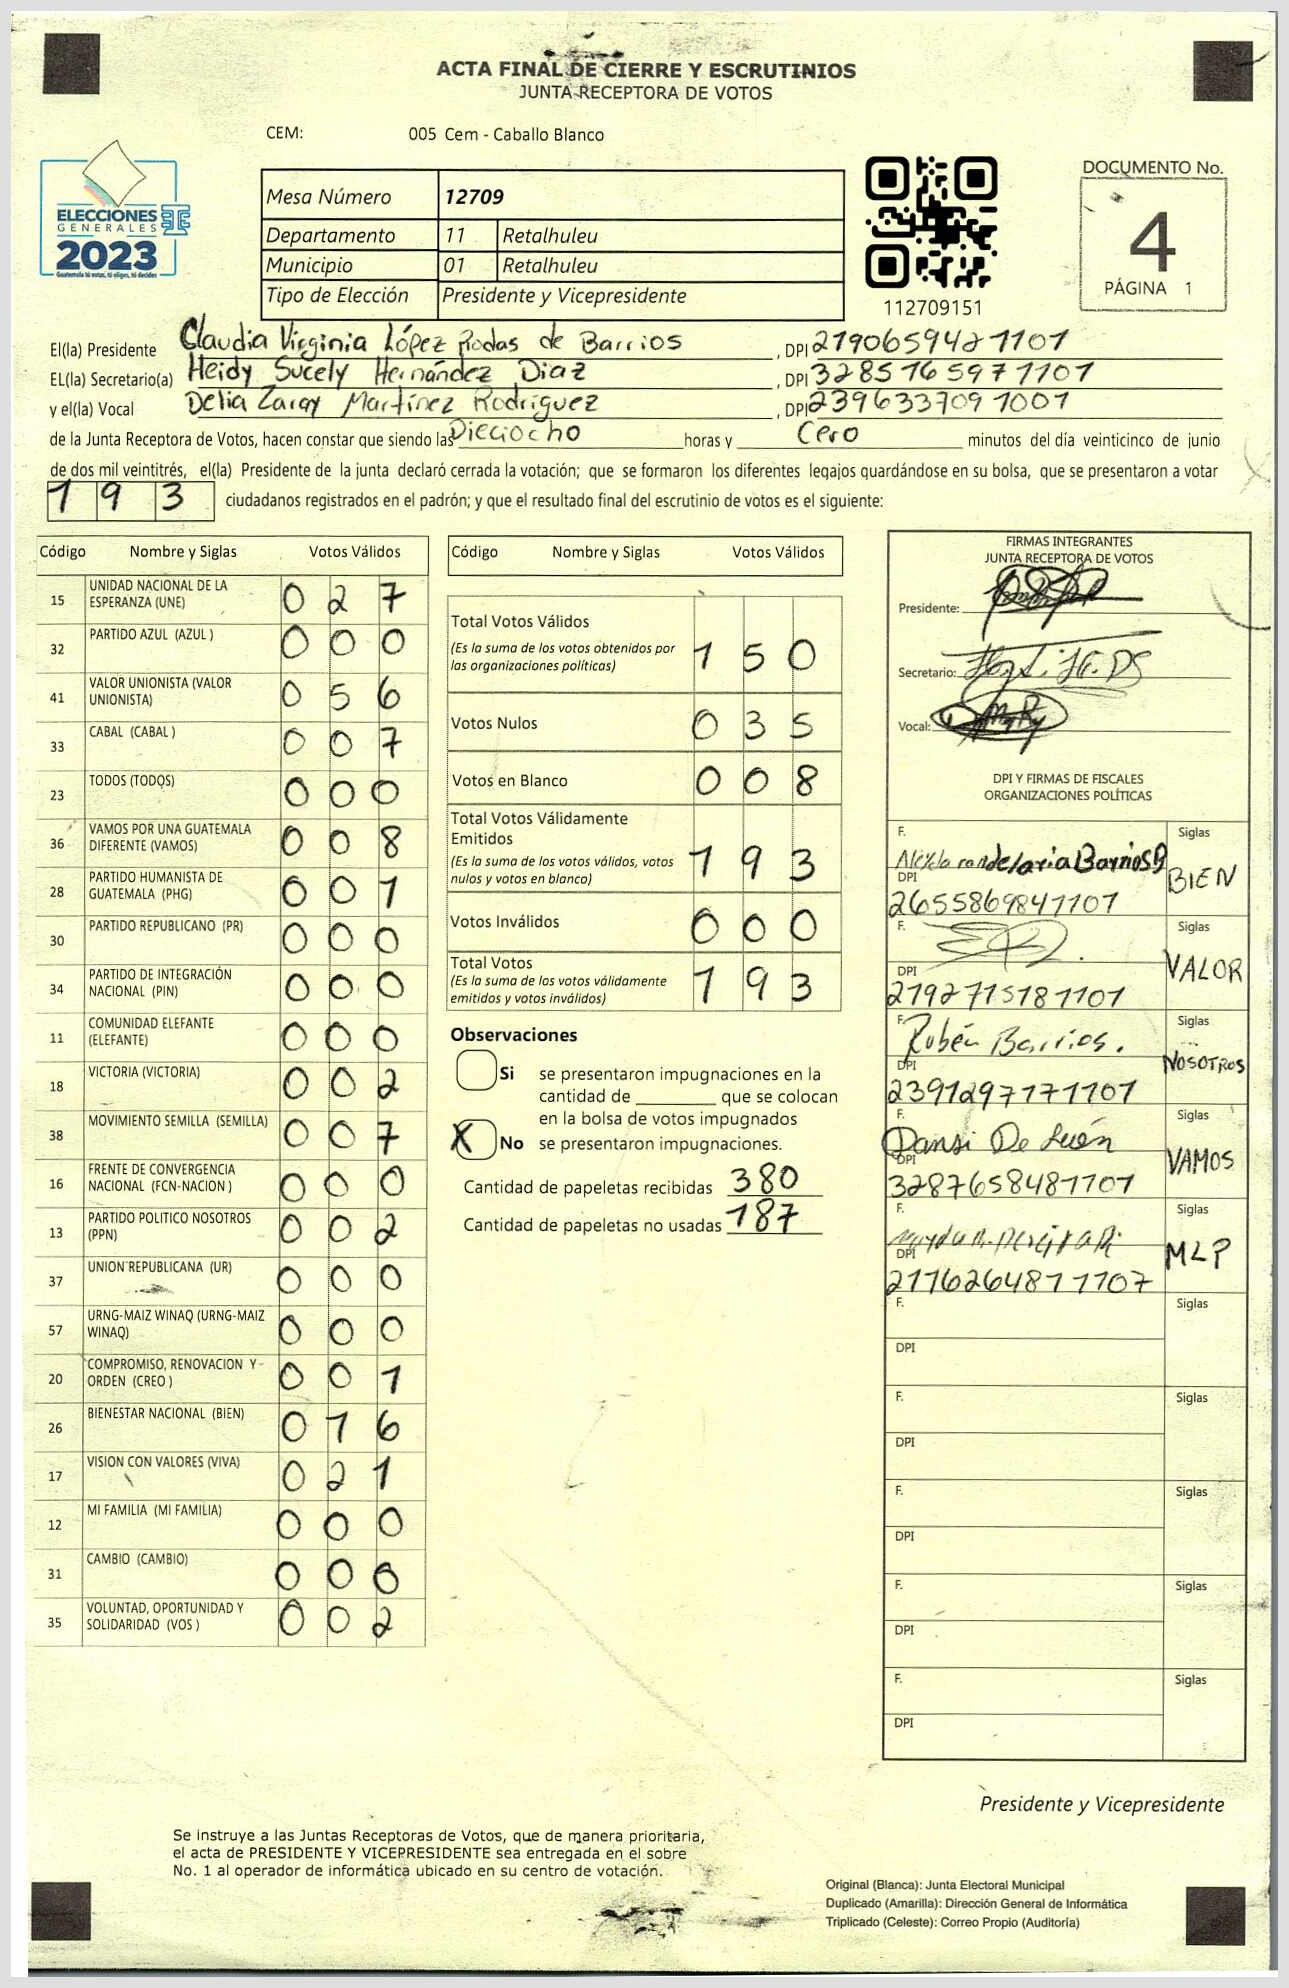 ACTA FINAL DE CIERRE Y ESCRUTINIOS
JUNTA RECEPTORA DE VOTOS
CEM: 005 Cem - Caballo Blanco
ELECCIONES
GENERALES
2023
Guatemala tú votas, tú eliges, tú decides
Mesa Número 12709
Departamento 11 Retalhuleu
Municipio 01 Retalhuleu
Tipo de Elección Presidente y Vicepresidente
112709151
DOCUMENTO No.
4
PÁGINA 1
El(la) Presidente Claudia Virginia López Rodas de Barrios, DPI 2190659421101
EL(la) Secretario(a) Heidy Sucely Hernández Diaz, DPI 3285165971101
y el(la) Vocal Delia Zaray Martínez Rodriguez, DPI 2396337091001
de la Junta Receptora de Votos, hacen constar que siendo las Dieciocho horas y Cero minutos del día veinticinco de junio
de dos mil veintitrés, el(la) Presidente de la junta declaró cerrada la votación; que se formaron los diferentes legajos quardándose en su bolsa, que se presentaron a votar
193 ciudadanos registrados en el padrón; y que el resultado final del escrutinio de votos es el siguiente:
Código Nombre y Siglas Votos Válidos
15 UNIDAD NACIONAL DE LA ESPERANZA (UNE) 0 2 7
32 PARTIDO AZUL (AZUL ) 0 0 0
41 VALOR UNIONISTA (VALOR UNIONISTA) 0 5 6
33 CABAL (CABAL ) 0 0 7
23 TODOS (TODOS) 0 0 0
36 VAMOS POR UNA GUATEMALA DIFERENTE (VAMOS) 0 0 8
28 PARTIDO HUMANISTA DE GUATEMALA (PHG) 0 0 1
30 PARTIDO REPUBLICANO (PR) 0 0 0
34 PARTIDO DE INTEGRACIÓN NACIONAL (PIN) 0 0 0
11 COMUNIDAD ELEFANTE (ELEFANTE) 0 0 0
18 VICTORIA (VICTORIA) 0 0 2
38 MOVIMIENTO SEMILLA (SEMILLA) 0 0 7
16 FRENTE DE CONVERGENCIA NACIONAL (FCN-NACION ) 0 0 0
13 PARTIDO POLITICO NOSOTROS (PPN) 0 0 2
37 UNION REPUBLICANA (UR) 0 0 0
57 URNG-MAIZ WINAQ (URNG-MAIZ WINAQ) 0 0 0
20 COMPROMISO, RENOVACION Y ORDEN (CREO ) 0 0 1
26 BIENESTAR NACIONAL (BIEN) 0 1 6
17 VISION CON VALORES (VIVA) 0 2 1
12 MI FAMILIA (MI FAMILIA) 0 0 0
31 CAMBIO (CAMBIO) 0 0 0
35 VOLUNTAD, OPORTUNIDAD Y SOLIDARIDAD (VOS ) 0 0 2
Código Nombre y Siglas Votos Válidos
Total Votos Válidos
(Es la suma de los votos obtenidos por
las organizaciones políticas) 1 5 0
Votos Nulos 0 3 5
Votos en Blanco 0 0 8
Total Votos Válidamente
Emitidos
(Es la suma de los votos válidos, votos
nulos y votos en blanco) 1 9 3
Votos Inválidos 0 0 0
Total Votos
(Es la suma de los votos válidamente
emitidos y votos inválidos) 1 9 3
Observaciones
Si se presentaron impugnaciones en la
cantidad de que se colocan
en la bolsa de votos impugnados
X No se presentaron impugnaciones.
Cantidad de papeletas recibidas 380
Cantidad de papeletas no usadas 187
FIRMAS INTEGRANTES
JUNTA RECEPTORA DE VOTOS
Presidente:
Secretario:
Vocal:
DPI Y FIRMAS DE FISCALES
ORGANIZACIONES POLÍTICAS
F. Barrios Siglas
DPI BIEN
2655869841101
F. Siglas
DPI VALOR
2192715181101
F. Rubén Barrios. Siglas
DPI NOSOTROS
2391297171101
F. Dansi De León Siglas
DPI VAMOS
3287658481101
F. Siglas
DPI MLP
2116264811107
F. Siglas
DPI
F. Siglas
DPI
F. Siglas
DPI
F. Siglas
DPI
F. Siglas
DPI
Presidente y Vicepresidente
Se instruye a las Juntas Receptoras de Votos, que de manera prioritaria,
el acta de PRESIDENTE Y VICEPRESIDENTE sea entregada en el sobre
No. 1 al operador de informática ubicado en su centro de votación.
Original (Blanca): Junta Electoral Municipal
Duplicado (Amarilla): Dirección General de Informática
Triplicado (Celeste): Correo Propio (Auditoría)